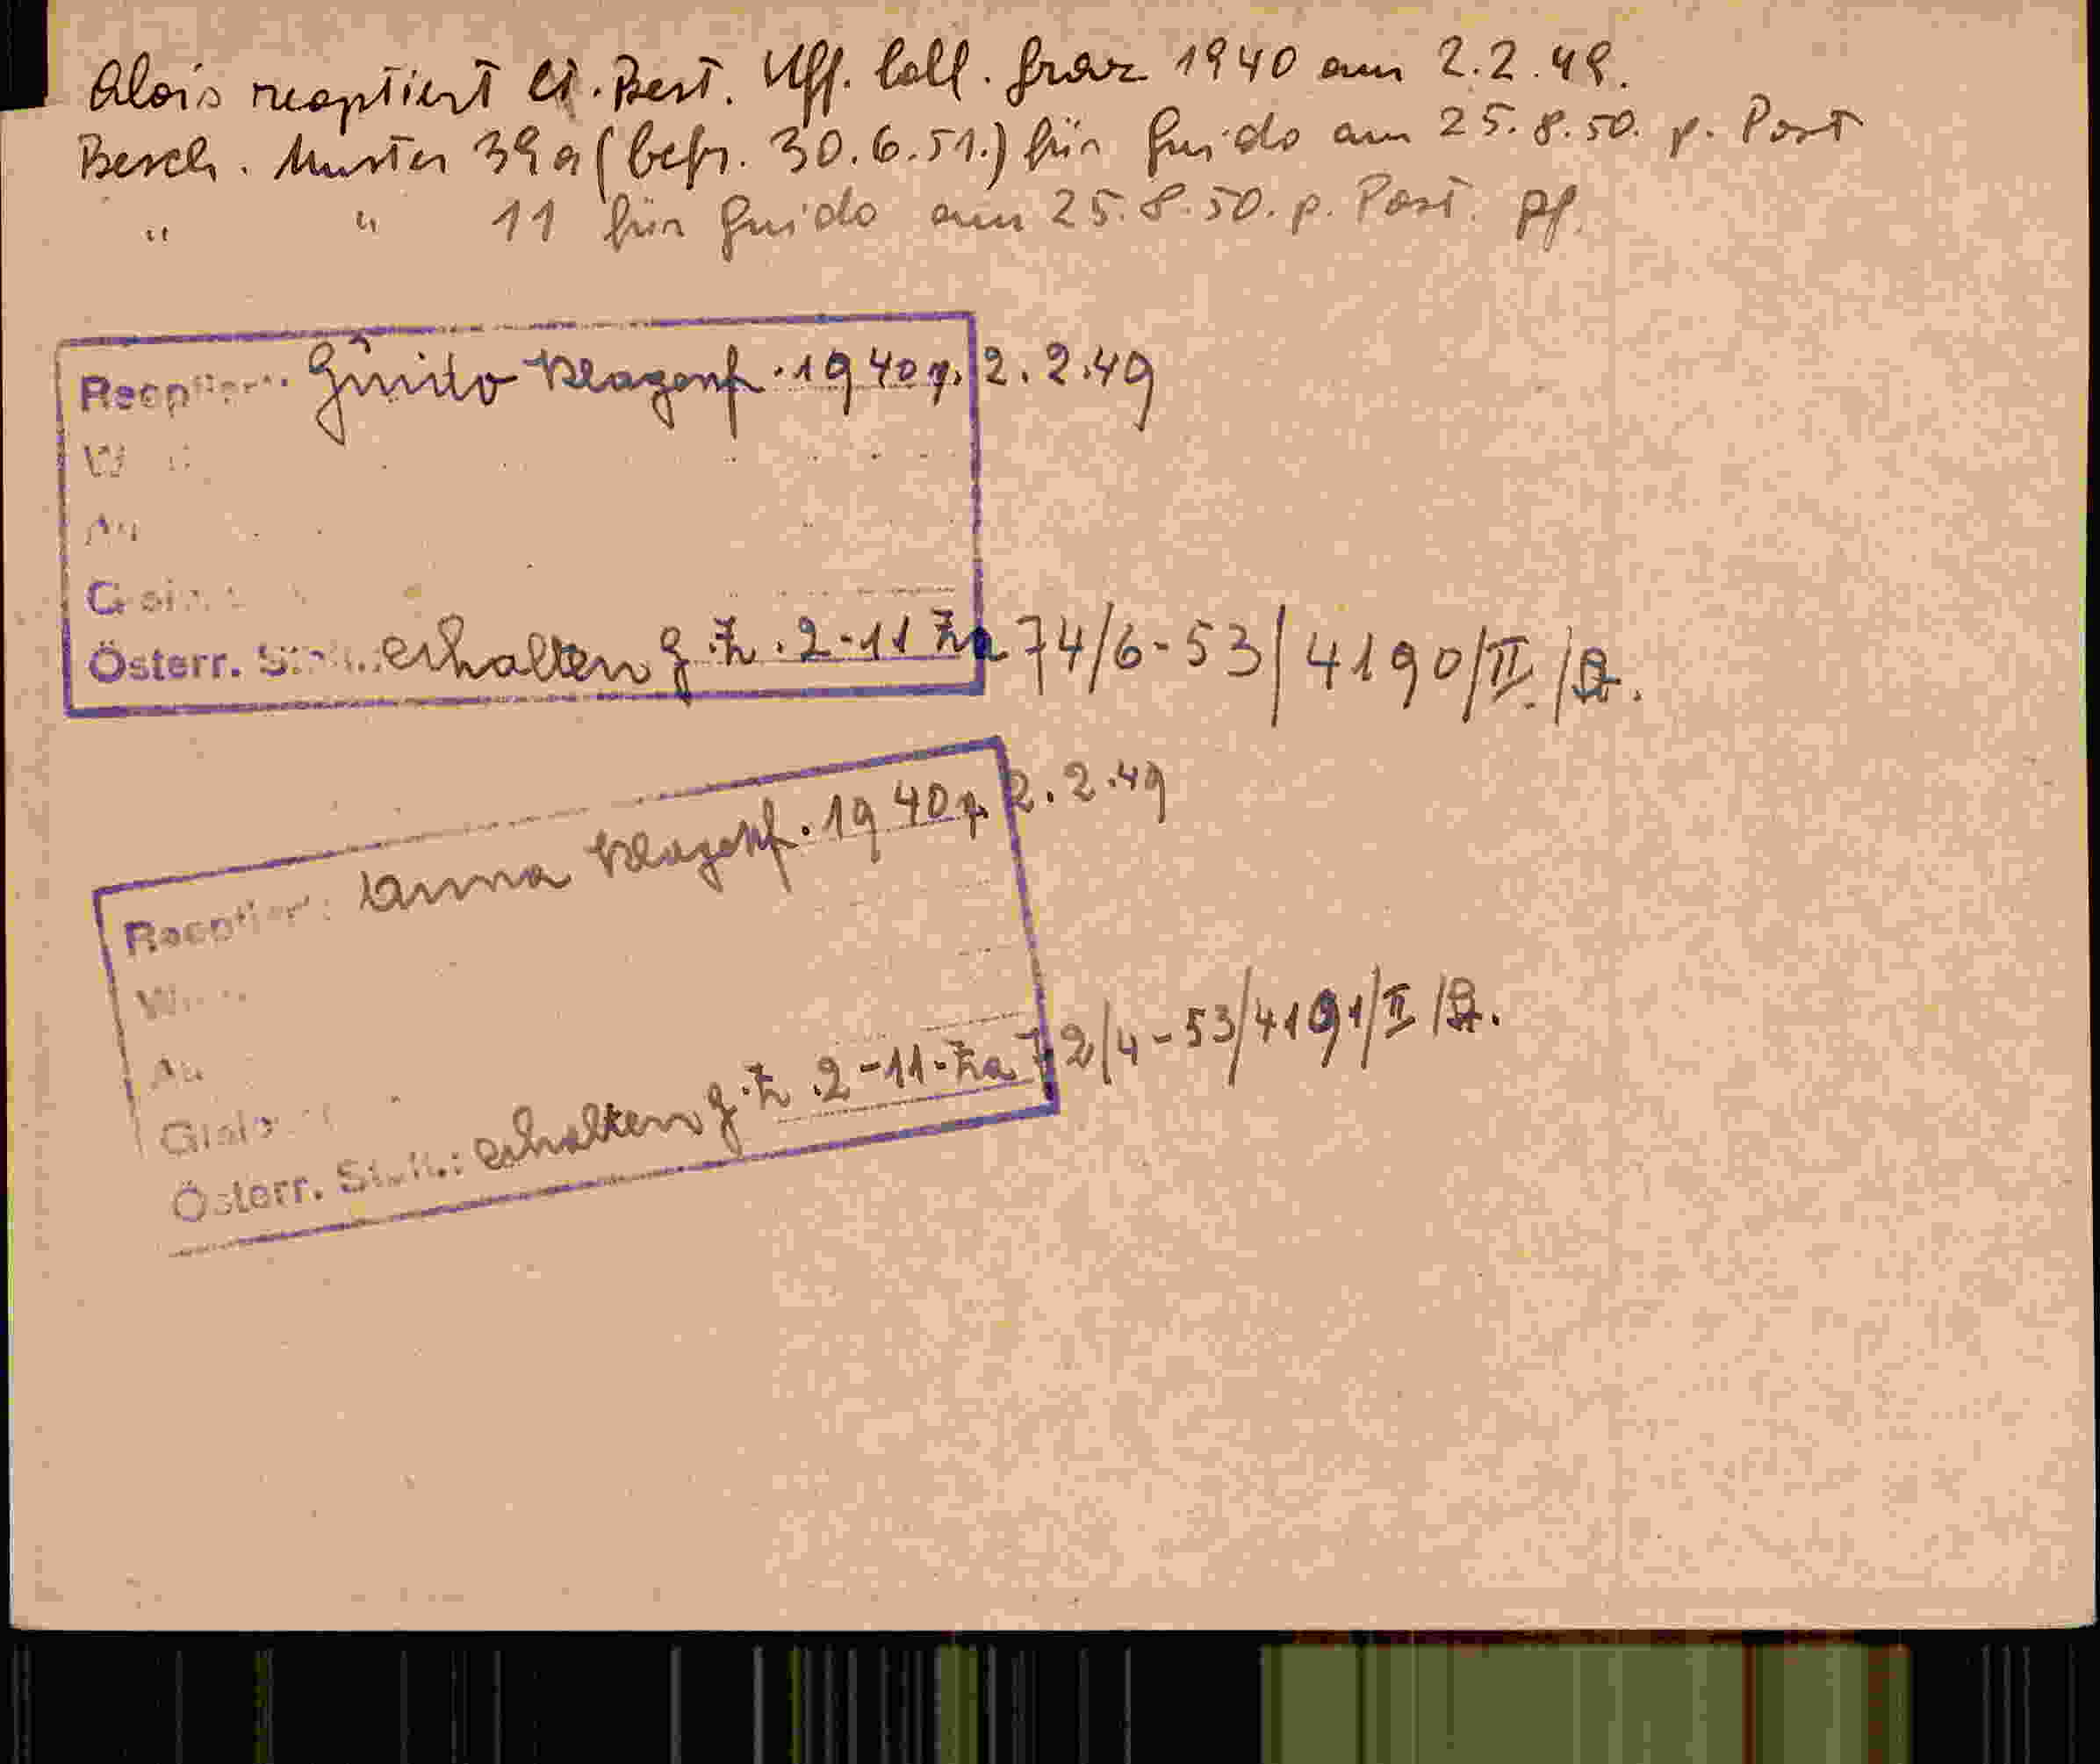 Alois reoptiert lt. Best. Uff. Coll. Graz 1940 am 2.2.49.
Besch. Muster 39a (befr. 30.6.51.) für Guido am 25.8.50. p. Post
" " 11 für Guido am 25.8.50. p. Post.
Reoptiert: Guido Klagenf. 1940 p. 2.2.49
Österr. erhalten g. Z. 2-11 Za 74/6-53/4190/II/
Reoptiert: Anna Klagenf. 1940 p. 2.2.49
Österr. erhalten g. Z. 2-11-Za 72/4-53/4191/II/